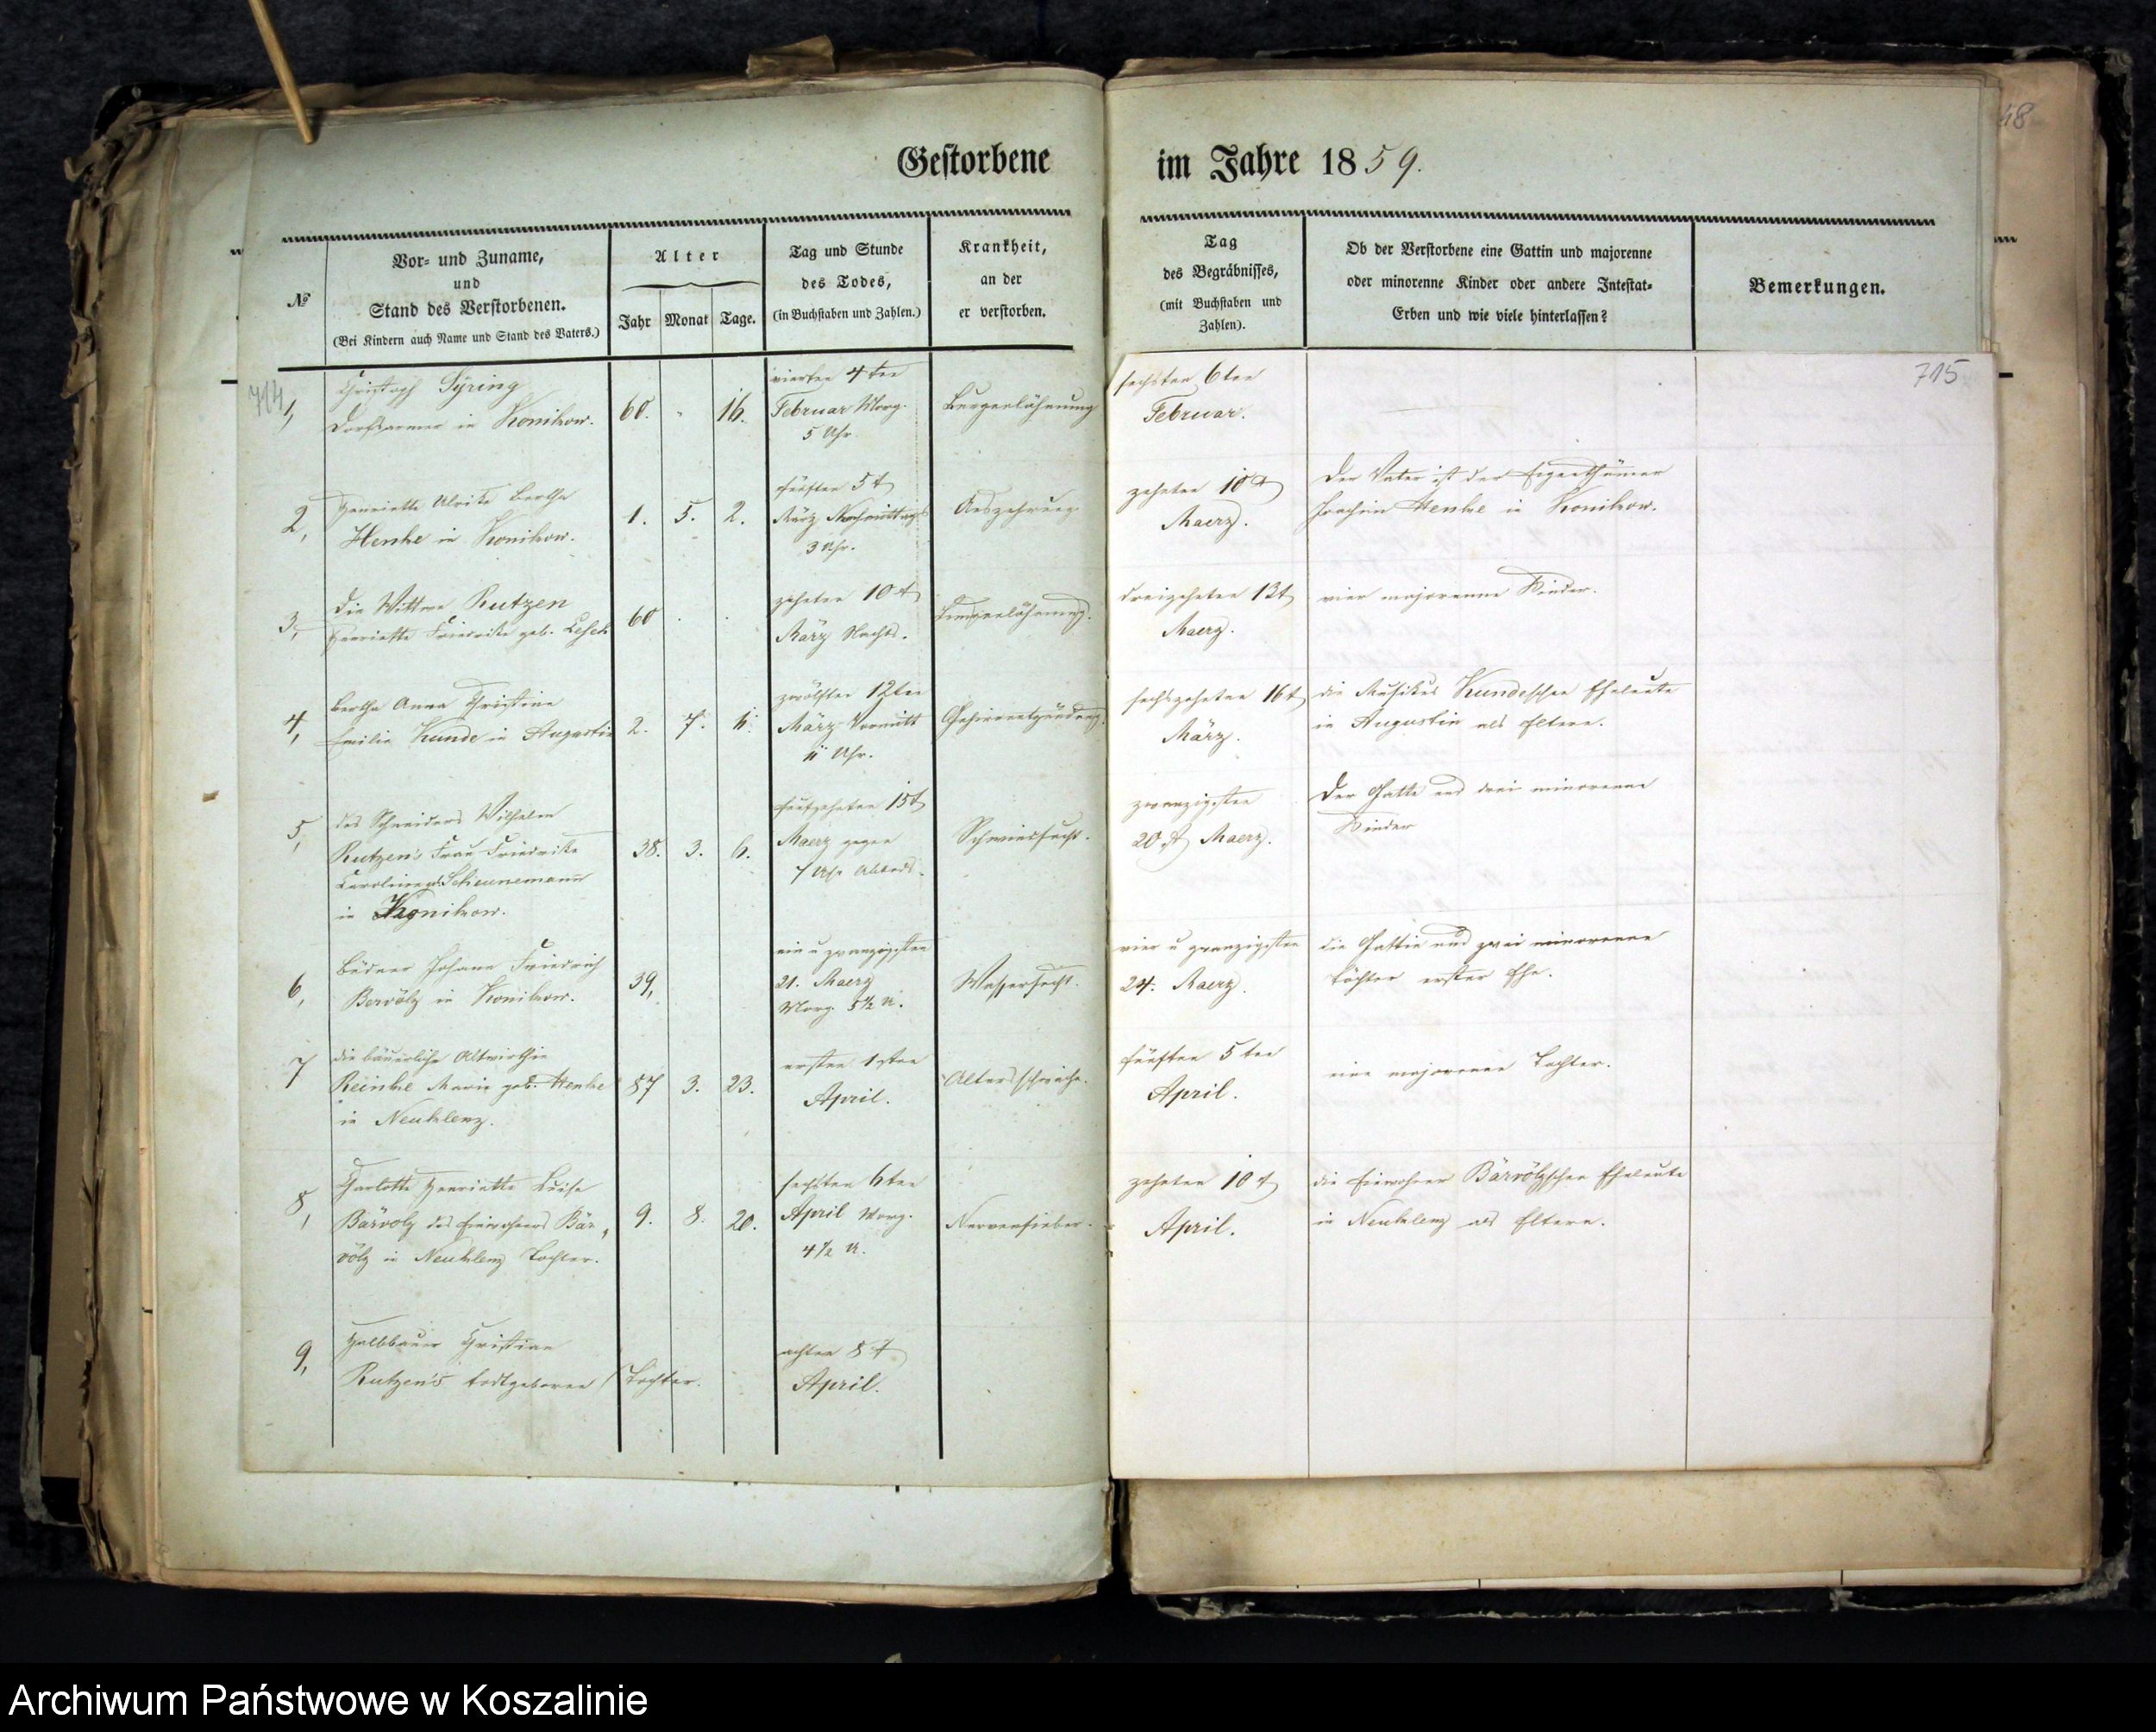 48
Gestorbene im Jahre 1859.
№
Vor- und Zuname,
und
Stand des Verstorbenen.
(Bei Kindern auch Name und Stand des Vaters.)
Alter
Jahr Monat Tage.
Tag und Stunde
des Todes,
(in Buchstaben und Zahlen.)
Krankheit,
an der
er verstorben.
Tag
des Begräbnisses,
(mit Buchstaben und
Zahlen).
Ob der Verstorbene eine Gattin und majorenne
oder minorenne Kinder oder andere Intestat-
Erben und wie viele hinterlassen?
Bemerkungen.
714
715
1,
Christoph Syring
Dorfsarmer in Konikow.
60. " 16.
vierten 4ten
Februar Morg.
5 Uhr.
Lungenlähmung
sechsten 6ten
Februar.
2,
Henriette Ulrike Bertha
Henke in Konikow.
1. 5. 2.
fünften 5t
März Nachmittags
3 Uhr.
Auszehrung
zehnten 10t
Maerz.
Der Vater ist der Eigenthümer
Joachim Henke in Konikow.
3,
die Wittwe Rutzen
Henriette Friedrike geb. Lesch
60 . .
zehnten 10t
März Nachts.
Lungenlähmung.
dreizehnten 13t
Maerz.
vier majorenne Kinder.
4,
Bertha Anna Christine
Emilie Kunde in Augustin
2. 7. 11.
zwölften 12ten
März Vormitt
11 Uhr.
Gehirnentzündung.
sechszehnten 16t
März.
die Musikus Kundeschen Eheleute
in Augustin als Eltern.
5,
des Schneiders Wilhelm
Rutzen's Frau Friedrike
Caroline geb. Scheunemann
in Konikow.
38. 3. 6.
funfzehnten 15t
Maerz gegen
7 Uhr Abends.
Schwindsucht.
zwanzigsten
20st Maerz.
Der Gatte und drei minorenne
Kinder
6,
Büdner Johann Friedrich
Bervölz in Konikow.
39,
ein u zwanzigsten
21. Maerz
Morg. 5½ U.
Wassersucht.
vier u zwanzigsten
24. Maerz.
die Gattin und zwei minorenne
Töchter erster Ehe.
7
die bäuerliche Altwirthin
Reinke Marie geb. Henke
in Neuklenz.
87 3. 23.
ersten 1sten
April.
Altersschwäche.
fünften 5ten
April.
eine majorenne Tochter.
8,
Charlotte Henriette Luise
Bärvölz des Einwohners Bär-
völz in Neuklenz Tochter.
9. 8. 20.
sechsten 6ten
April Morg.
4½ U.
Nervenfieber.
zehnten 10t
April.
die Einwohner Bärvölzschen Eheleute
in Neuklenz als Eltern.
9,
Halbbauer Christian
Rutzen's todtgeborene Tochter.
achten 8t
April.
Archiwum Państwowe w Koszalinie